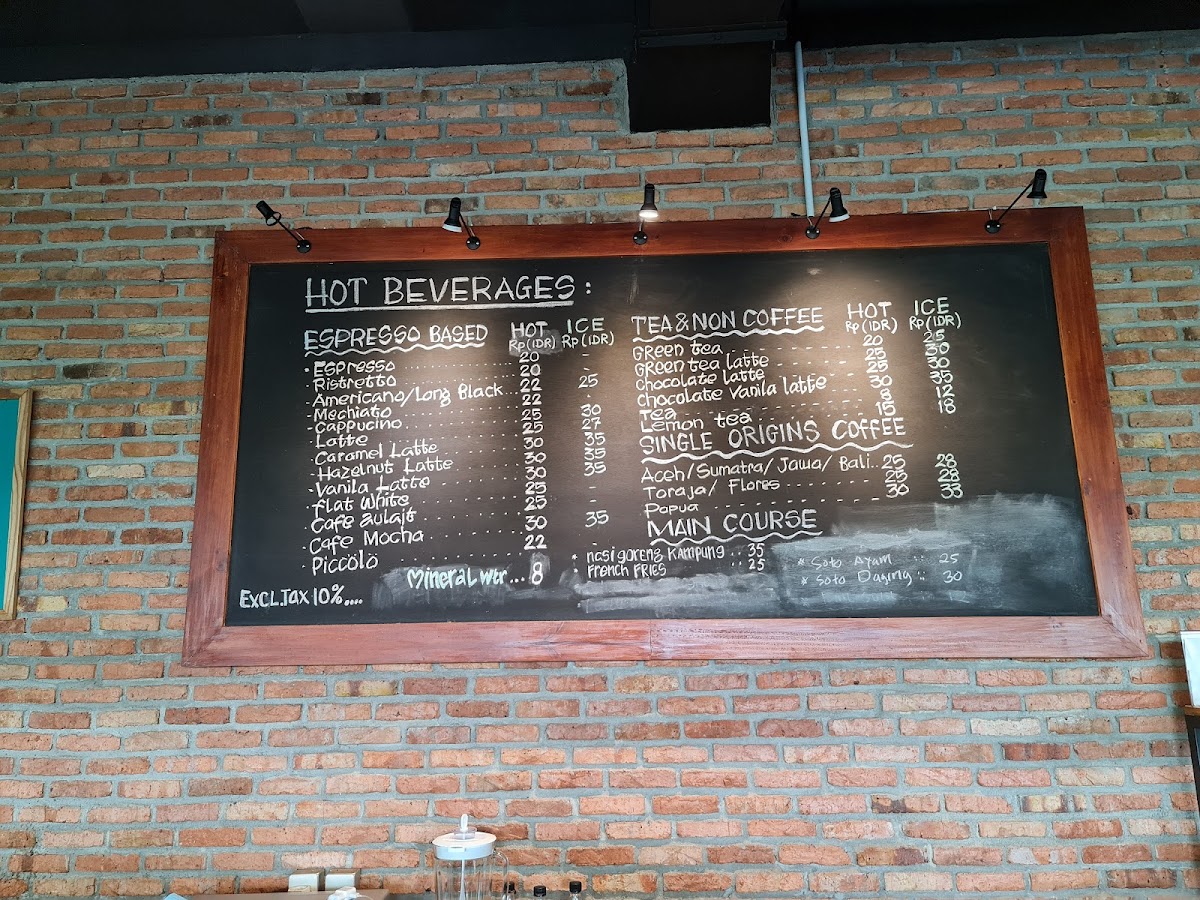 HOT BEVERAGES :
ESPRESSO BASED HOT ICE
Rp(IDR) Rp(IDR)
· Espresso 20 -
· Ristretto 20 -
· Americano/Long Black 22 25
· Mechiato 22 -
· Cappucino 25 30
· Latte 25 27
· Caramel Latte 30 35
· Hazelnut Latte 30 35
· Vanila Latte 30 35
· Flat White 25 -
· Cafe aulait 25 -
· Cafe Mocha 30 35
· Piccolo 22 -
Mineral wtr... 8
EXCL.TAX 10%....
TEA & NON COFFEE HOT ICE
Rp(IDR) Rp(IDR)
Green tea 20 25
Green tea latte 25 30
Chocolate latte 25 30
Chocolate vanila latte 30 35
Tea 8 12
Lemon tea 15 18
SINGLE ORIGINS COFFEE
Aceh/Sumatra/Jawa/Bali.. 25 28
Toraja/ Flores 25 28
Papua 30 33
MAIN COURSE
* nasi goreng Kampung .. 35
* French FRIES .. 25
* Soto Ayam ... 25
* Soto Daging .. 30